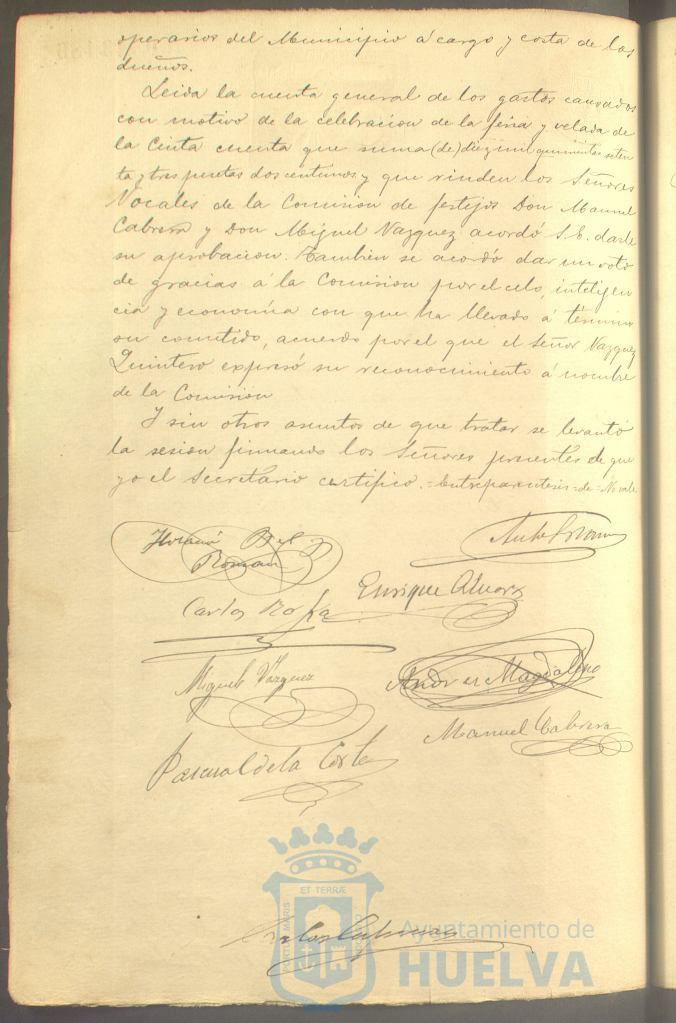 operarios del Municipio á cargo y costa de los
dueños.
Leida la cuenta general de los gastos causados
con motivo de la celebracion de la feria y velada de
la Cinta cuenta que suma (de) diez mil quinientas seten
ta y tres pesetas dos centimos y que rinden los Señores
Vocales de la Comision de festejos Don Manuel
Cabrera y Don Miguel Vazquez acordó S.E. darle
su aprobacion. Tambien se acordó dar un voto
de gracias á la Comision por el celo, inteligen
cia y economia con que ha llevado á término
su cometido, acuerdo por el que el Señor Vazquez
Quintero expresó su reconocimiento á nombre
de la Comision
Y sin otros asuntos de que tratar se levantó
la sesion firmando los Señores presentes de que
yo el Secretario certifico. = Entreparentesis = de = No vale
Horacio Bel
Roman
Enrique Alvarez
Carlos
Miguel Vázquez
Andres Magdaleno
Manuel Cabrera
Pascual de la Corte
ET TERRÆ
PORTUS MARIS
CUSTODIO
Ayuntamiento de
HUELVA